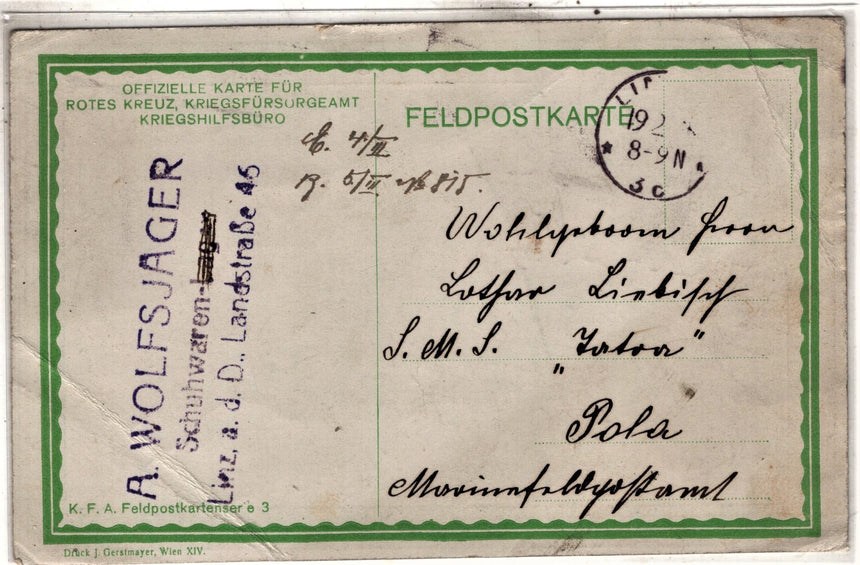 OFFIZIELLE KARTE FÜR
ROTES KREUZ, KRIEGSFÜRSORGEAMT
KRIEGSHILFSBÜRO
FELDPOSTKARTE
8-9N
E. 4/II
B. 5/II № 815.
A. WOLFSJÄGER
Schuhwaren-Lager
Linz, a. d. D., Landstraße 46
Wohlgeboren Herrn
Lothar Liebisch
S. M. S. „Tatra"
Pola
Marinefeldpostamt
K. F. A. Feldpostkartenser e 3
Druck J. Gerstmayer, Wien XIV.